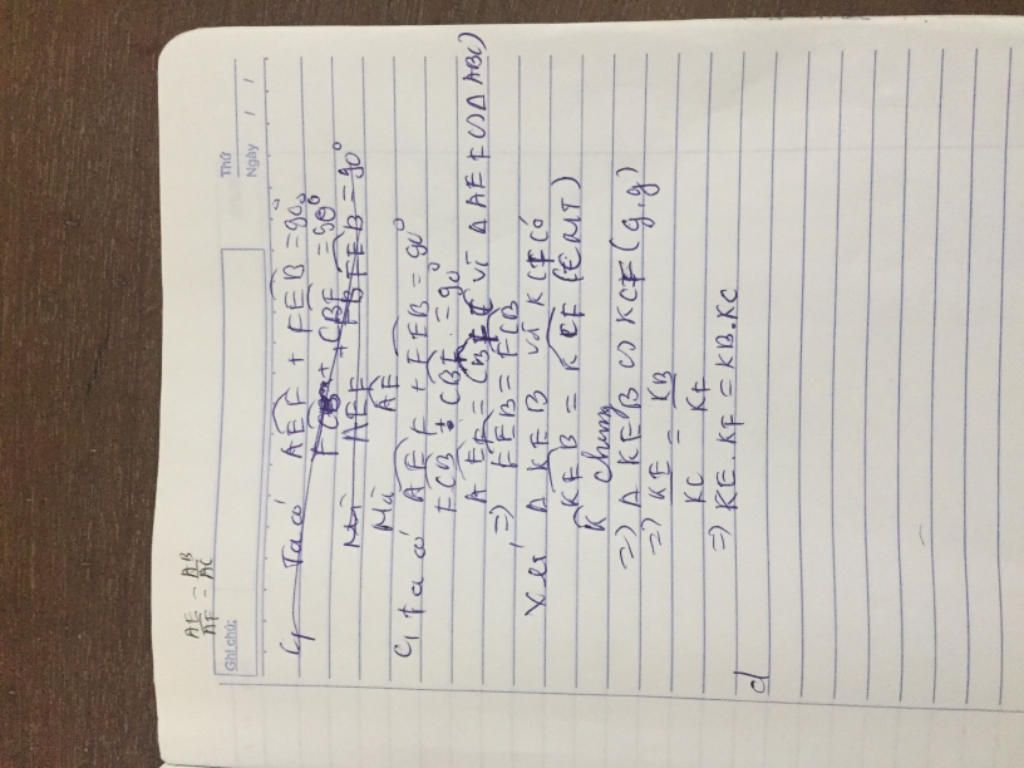 AE/AF = AB/AC
Ghi chú:
Thứ
Ngày / /
c, Ta có AEF + FEB = 90°
FCB + CBF = 90°
Mà AEF FEB = 90°
Mà AF
c, ta có AEF + FEB = 90°
FCB + CBF = 90°
AEF = CBF vì Δ AEF ∽ Δ ABC)
=> FEB = FCB
Xét Δ KEB và KCF có
KEB = KCF (CMT)
K chung
=> Δ KEB ∽ KCF (g.g)
=> KE/KC = KB/KF
=> KE.KF = KB.KC
d